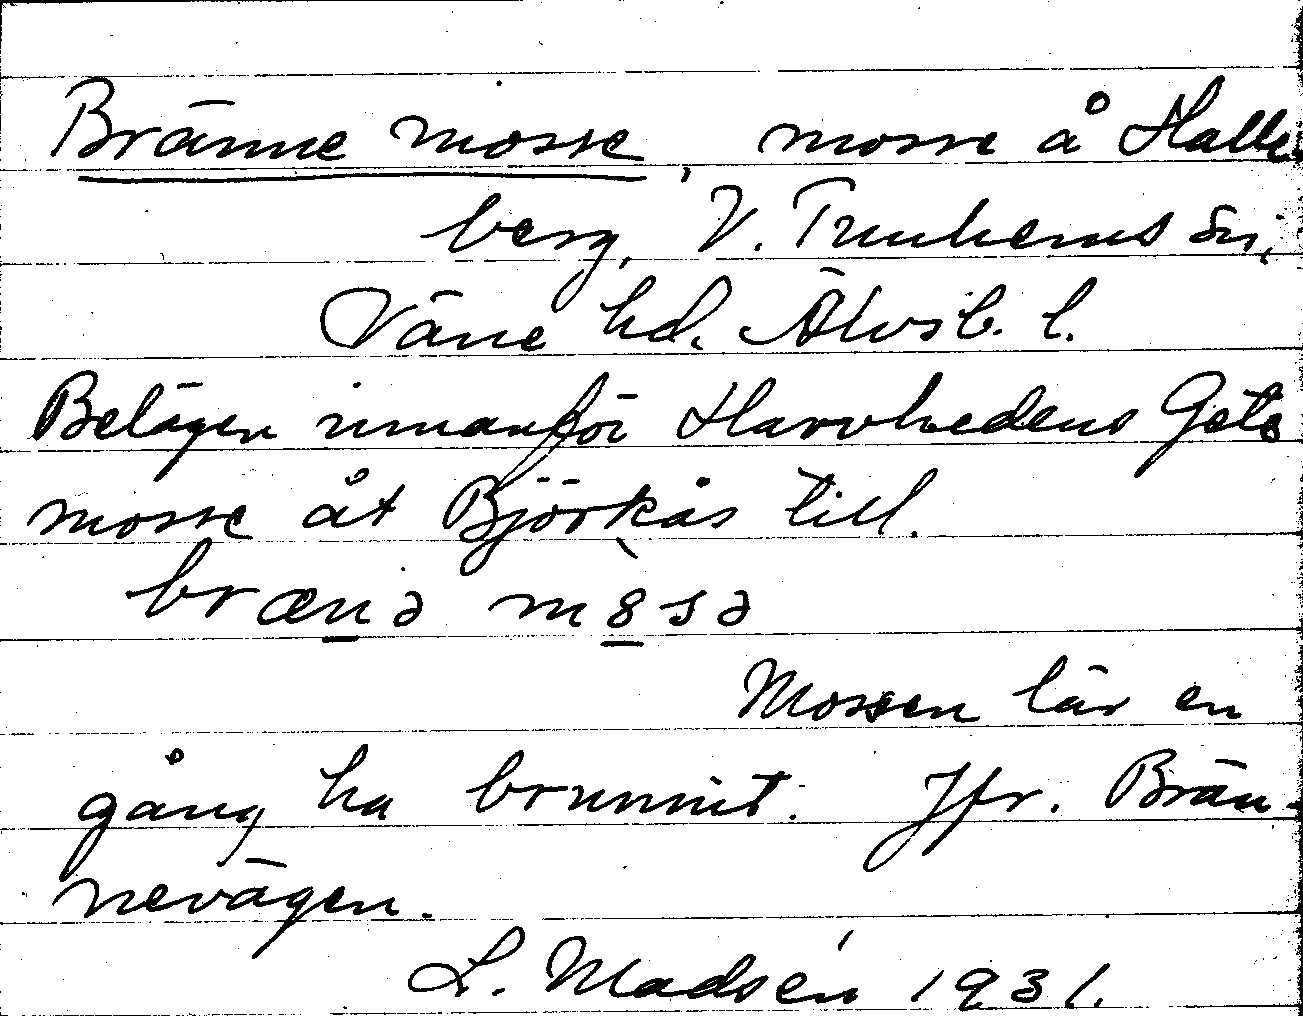 Bränne mosse, mosse å Halle
berg, V. Tunhems sn,
Väne hd. Älvsb. l.
Belägen innanför Harvhedens Göte
mosse åt Björkås till.
brænə m8sə
Mossen lär en
gång ha brunnit. Jfr. Brän-
nevägen.
L. Madsén 1931.